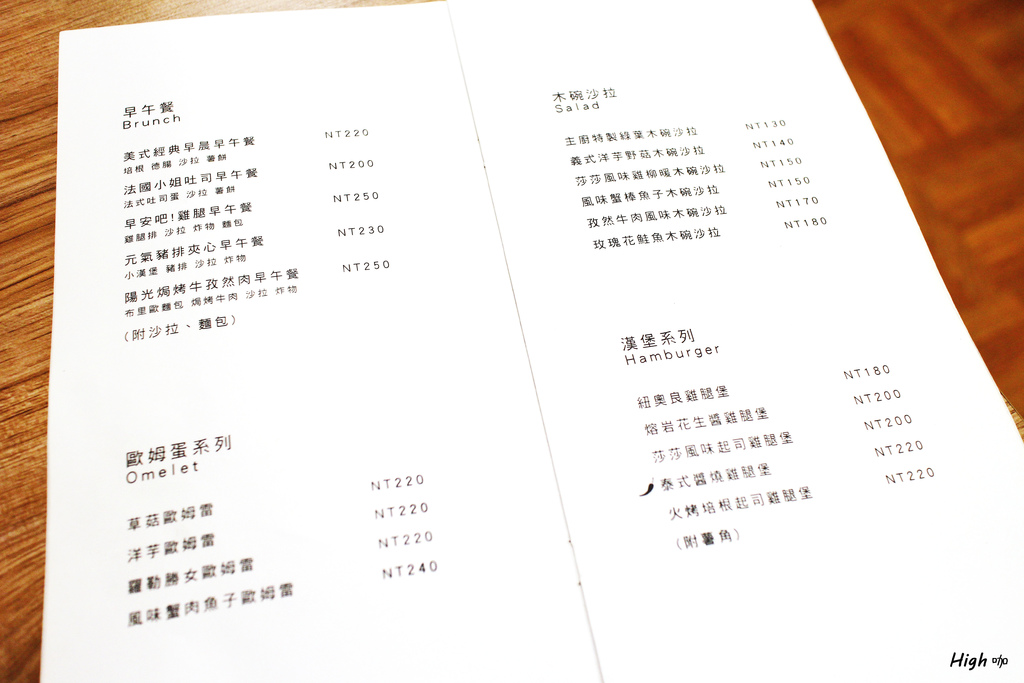 早午餐
Brunch
美式經典早晨早午餐 NT220
培根 德腸 沙拉 薯餅
法國小姐吐司早午餐 NT200
法式吐司蛋 沙拉 薯餅
早安吧!雞腿早午餐 NT250
雞腿排 沙拉 炸物 麵包
元氣豬排夾心早午餐 NT230
小漢堡 豬排 沙拉 炸物
陽光焗烤牛孜然肉早午餐 NT250
布里歐麵包 焗烤牛肉 沙拉 炸物
(附沙拉、麵包)
歐姆蛋系列
Omelet
草菇歐姆雷 NT220
洋芋歐姆雷 NT220
羅勒勝女歐姆雷 NT220
風味蟹肉魚子歐姆雷 NT240
木碗沙拉
Salad
主廚特製綠葉木碗沙拉 NT130
義式洋芋野菇木碗沙拉 NT140
莎莎風味雞柳暖木碗沙拉 NT150
風味蟹棒魚子木碗沙拉 NT150
孜然牛肉風味木碗沙拉 NT170
玫瑰花鮭魚木碗沙拉 NT180
漢堡系列
Hamburger
紐奧良雞腿堡 NT180
熔岩花生醬雞腿堡 NT200
莎莎風味起司雞腿堡 NT200
泰式醬燒雞腿堡 NT220
火烤培根起司雞腿堡 NT220
(附薯角)
High 咖